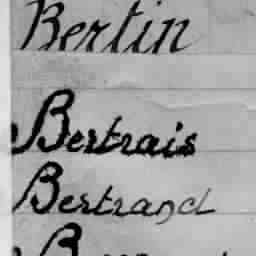 Bertin
Bertrais
Bertrand